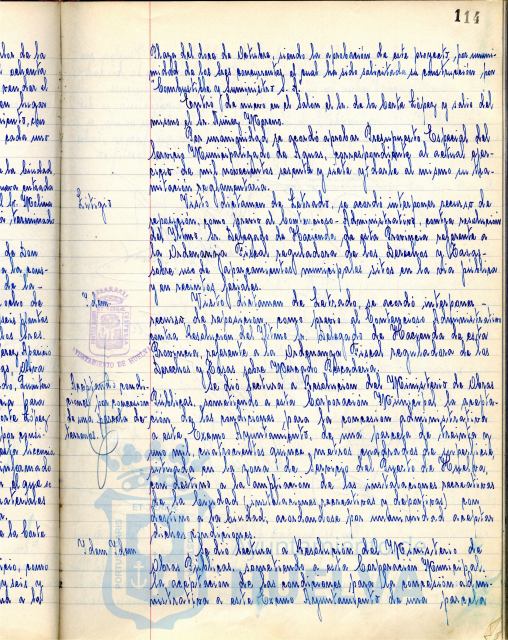 114
Plaza del doce de Octubre, siendo la aprobación de este proyecto, por unani-
midad de los Sres concurrentes, el cual ha sido solicitado su construcción por
Combustible y Suministro S. A.
Entró de nuevo en el Salón el Sr. de la Corte López y salió del
mismo el Sr. Núñez Moreno.
Por unanimidad se acordó aprobar Presupuesto Especial del
Servicio Municipalizado de Aguas, correspondiente al actual ejer-
cicio de mil novecientos sesenta y siete y darle al mismo su tra-
mitación reglamentaria.
Litigio
Visto dictamen de Letrado, se acordó interponer recurso de
reposición, como previo al Contencioso-Administrativo, contra resolución
del Iltmo. Sr. Delegado de Hacienda de esta Provincia referente a
la Ordenanza Fiscal reguladora de los Derechos y Tasas
sobre uso de aparcamientos municipales sitos en la vía pública
y en recintos feriales.
Idem
Visto dictamen de Letrado, se acordó interponer
recurso de reposición, como previo al Contencioso Administrativo
contra Resolución del Iltmo Sr. Delegado de Hacienda de esta
Provincia, referente a la Ordenanza Fiscal reguladora de los
Derechos y Tasas sobre Mercado Pescadería.
Aceptando condi-
ciones por concesión
de una parcela de
terrenos.
Se dio lectura a Resolución del Ministerio de Obras
Públicas, sometiendo a esta Corporación Municipal la acepta-
ción de las condiciones para la concesión administrativa
a este Excmo Ayuntamiento, de una parcela de treinta y
un mil cuatrocientos quince metros cuadrados de superficie,
situada en la zona de servicio del Puerto de Huelva,
con destino a la amplificación de las instalaciones recreativas
de la Ciudad (instalaciones recreativas y deportivas) con
destino a la Ciudad, acordandose por unanimidad aceptar
dichas condiciones.
Idem Idem
Se dió lectura a Resolución del Ministerio de
Obras Públicas, sometiendo a esta Corporación Municipal
la aceptación de las condiciones para la concesión admi-
nistrativa a este Excmo Ayuntamiento de una parcela